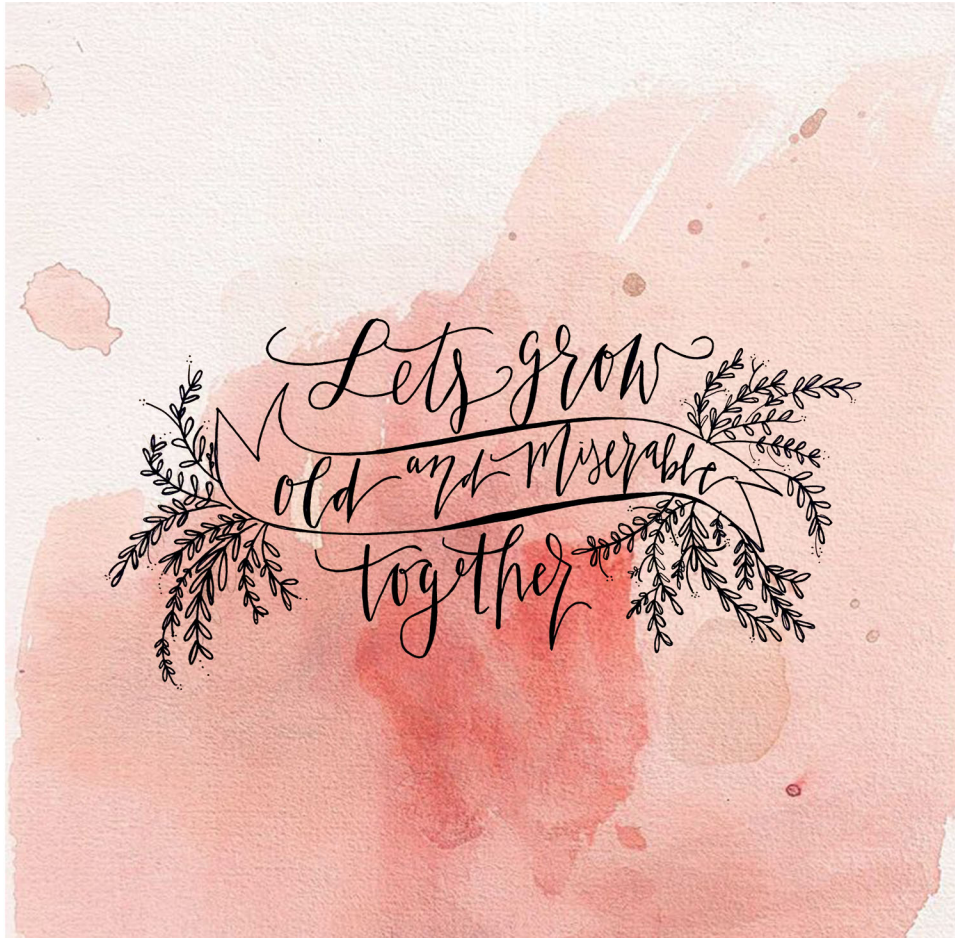 Lets grow
old and Miserable
together